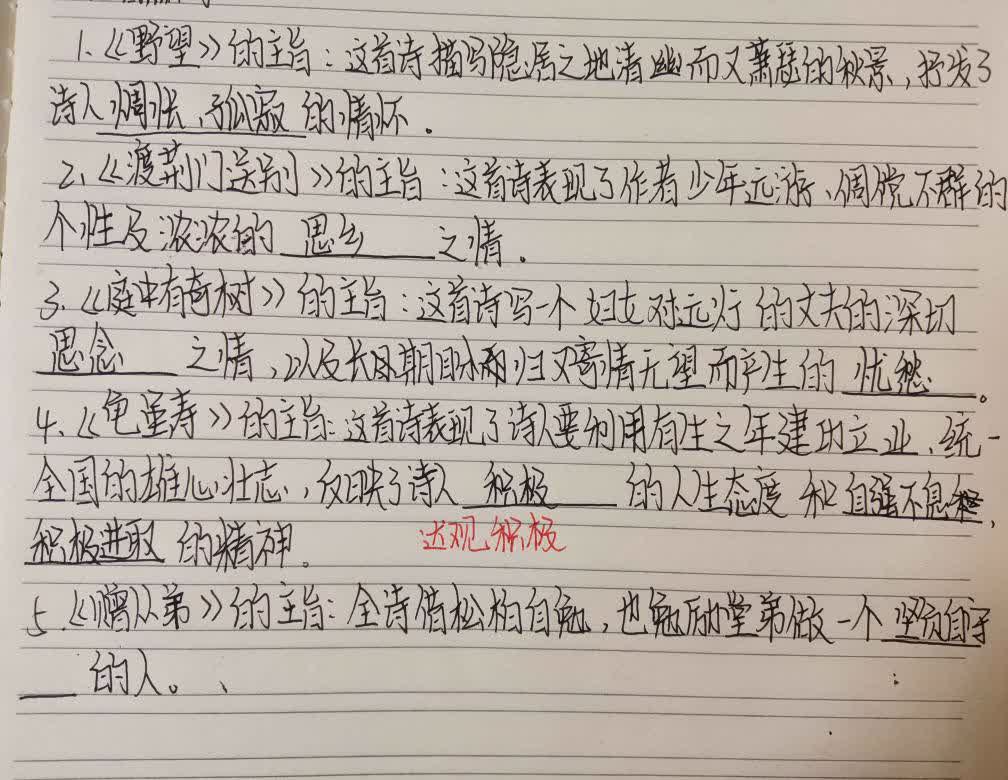 1、《野望》的主旨：这首诗描写隐居之地清幽而又萧瑟的秋景，抒发了
诗人惆怅、孤寂的情怀。
2、《渡荆门送别》的主旨：这首诗表现了作者少年远游、倜傥不群的
个性及浓浓的 思乡 之情。
3、《庭中有奇树》的主旨：这首诗写一个妇女对远行的丈夫的深切
思念 之情，以及长期盼归又寄情无望而产生的 忧愁 。
4、《龟虽寿》的主旨：这首诗表现了诗人要利用有生之年建功立业、统一
全国的雄心壮志，反映了诗人 积极 的人生态度 和自强不息，
积极进取 的精神。
达观积极
5、《赠从弟》的主旨：全诗借松柏自勉，也勉励堂弟做一个 坚贞自守
的人。、